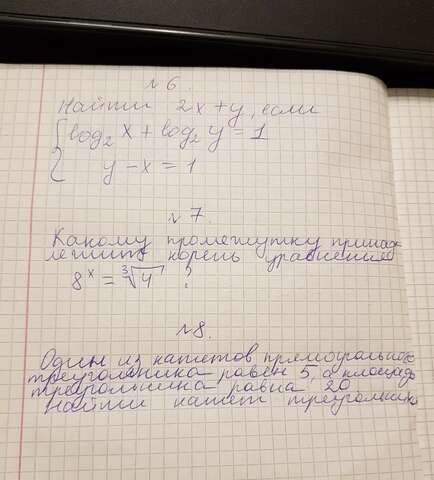 №6.
Найти 2x+y, если
{ log₂ x + log₂ y = 1
y - x = 1
№7.
Какому промежутку принад
лежит корень уравнения
8ˣ = ∛4 ?
№8.
Один из катетов прямоугольного
треугольника равен 5, а площадь
треугольника равна 20
Найти катет треугольник